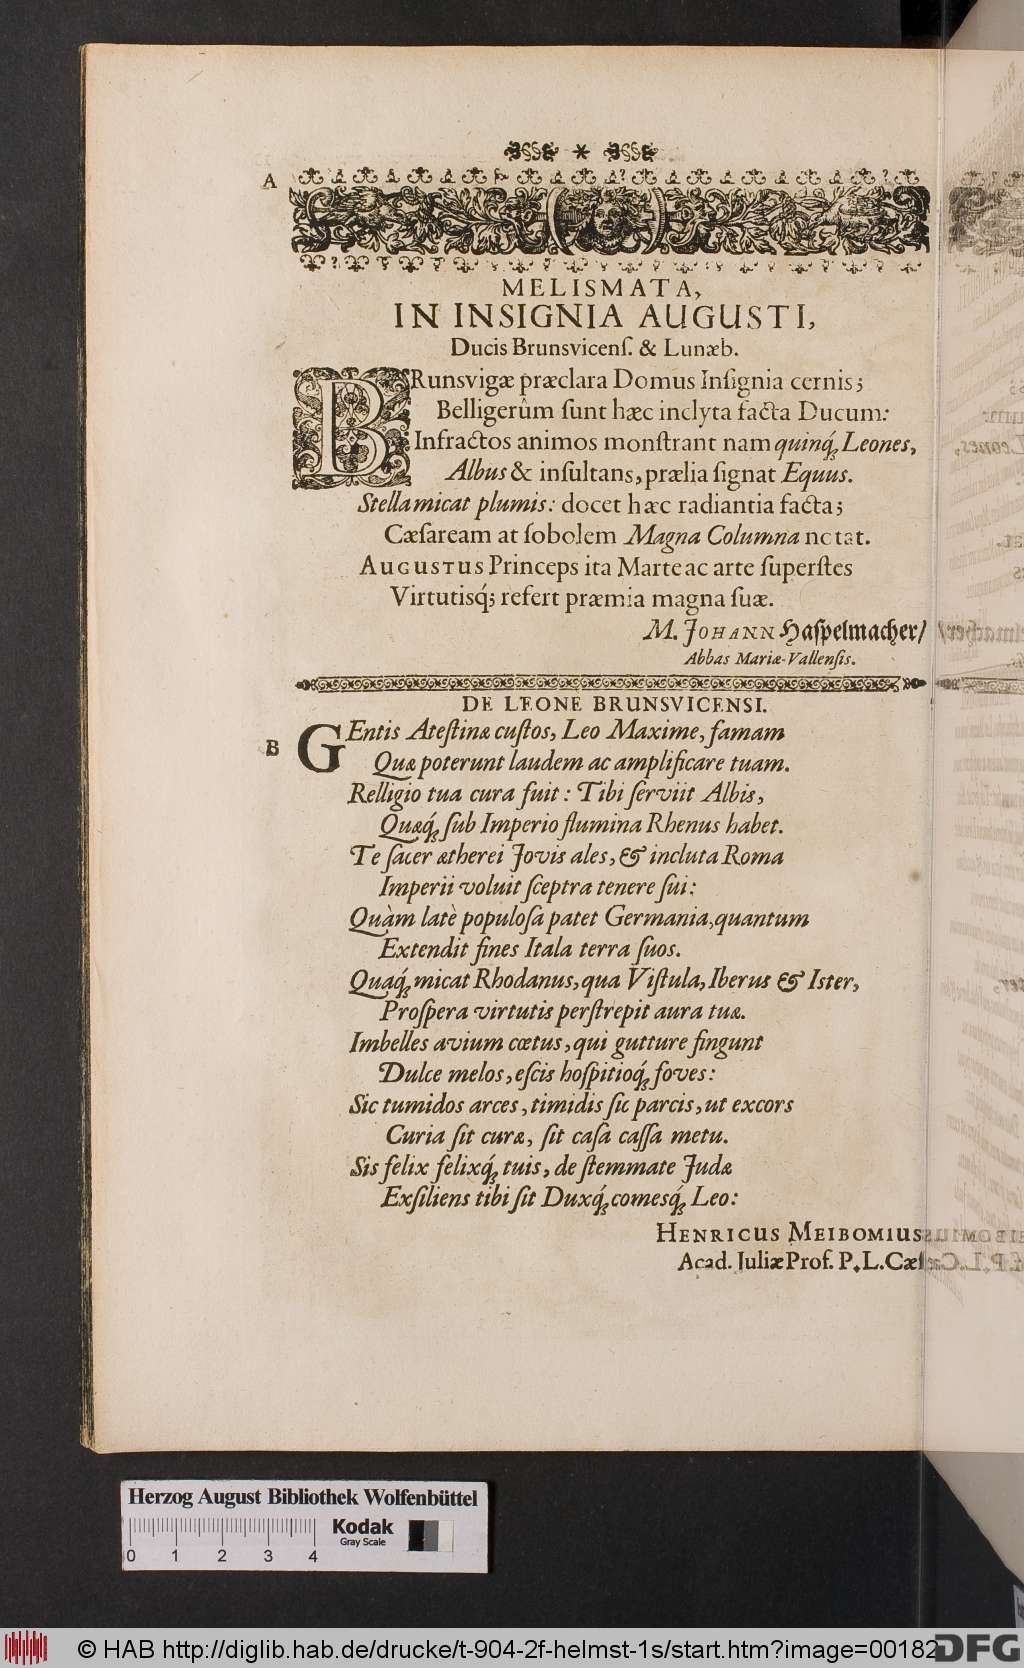 A
MELISMATA,
IN INSIGNIA AUGUSTI,
Ducis Brunsvicenſ. & Lunæb.
BRunsvigæ præclara Domus Inſignia cernis;
Belligerûm ſunt hæc inclyta facta Ducum:
Infractos animos monſtrant nam quinq́; Leones,
Albus & inſultans, prælia ſignat Equus.
Stella micat plumis: docet hæc radiantia facta;
Cæſaream at ſobolem Magna Columna notat.
AUGUSTUS Princeps ita Marte ac arte ſuperſtes
Virtutisq́; refert præmia magna ſuæ.
M. JOHANN Haſpelmacher/
Abbas Mariæ-Vallenſis.
DE LEONE BRUNSVICENSI.
B
GEntis Ateſtinæ cuſtos, Leo Maxime, famam
Quæ poterunt laudem ac amplificare tuam.
Relligio tua cura fuit: Tibi ſerviit Albis,
Quæq́; ſub Imperio flumina Rhenus habet.
Te ſacer ætherei Jovis ales, & incluta Roma
Imperii voluit ſceptra tenere ſui:
Quàm latè populoſa patet Germania, quantum
Extendit fines Itala terra ſuos.
Quaq́; micat Rhodanus, qua Viſtula, Iberus & Ister,
Proſpera virtutis perſtrepit aura tuæ.
Imbelles avium cœtus, qui gutture fingunt
Dulce melos, eſcis hoſpitioq́; foves:
Sic tumidos arces, timidis ſic parcis, ut excors
Curia ſit curæ, ſit caſa caſſa metu.
Sis felix felixq́; tuis, de ſtemmate Judæ
Exſiliens tibi ſit Duxq́; comesq́; Leo:
HENRICUS MEIBOMIUS
Acad. Juliæ Prof. P. L. Cæſ
Herzog August Bibliothek Wolfenbüttel
0 1 2 3 4
Kodak
Gray Scale
© HAB http://diglib.hab.de/drucke/t-904-2f-helmst-1s/start.htm?image=00182
DFG